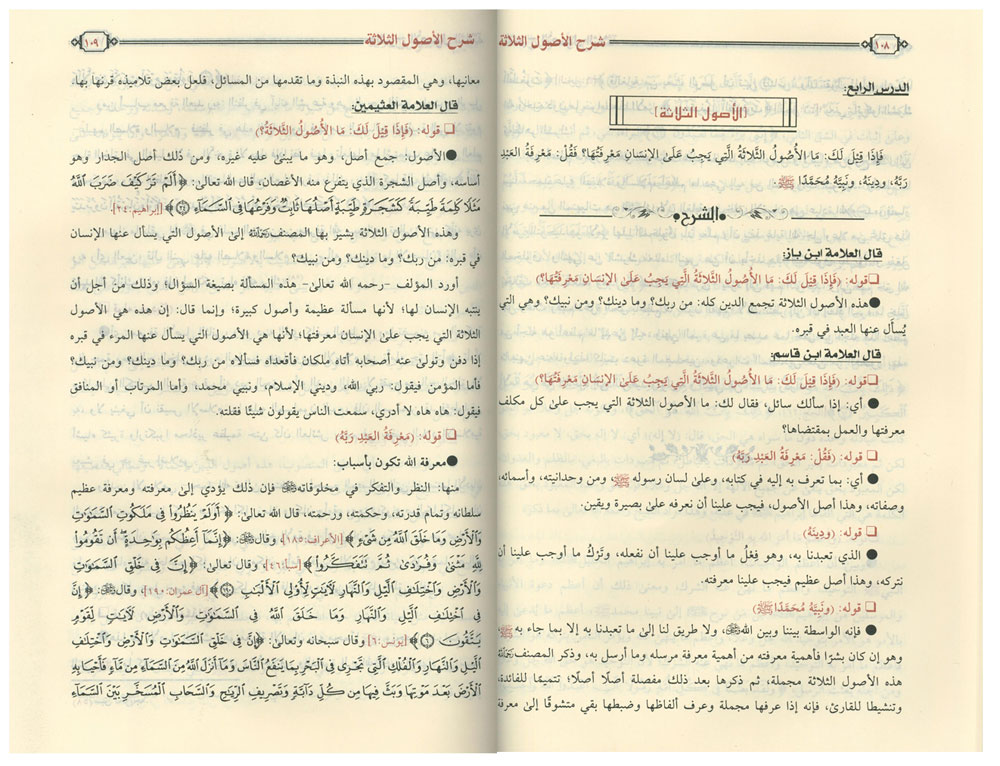 ١٠٨
شرح الأصول الثلاثة
الدرس الرابع:
[الأصول الثلاثة]
فَإِذَا قِيْلَ لَكَ: مَا الأُصُولُ الثَّلَاثَةُ الَّتِي يَجِبُ عَلَى الإِنسَانِ مَعْرِفَتُهَا؟ فَقُلْ: مَعْرِفَةُ العَبْدِ
رَبَّهُ، ودِينَهُ، ونَبِيَّهُ مُحَمَّدًا ﷺ.
الشرح
قال العلامة ابن باز:
❑ قوله: (فَإِذَا قِيْلَ لَكَ: مَا الأُصُولُ الثَّلَاثَةُ الَّتِي يَجِبُ عَلَى الإِنسَانِ مَعْرِفَتُهَا؟)
● هذه الأصول الثلاثة تجمع الدين كله: من ربك؟ وما دينك؟ ومن نبيك؟ وهي التي
يُسأل عنها العبد في قبره.
قال العلامة ابن قاسم:
❑ قوله: (فَإِذَا قِيْلَ لَكَ: مَا الأُصُولُ الثَّلَاثَةُ الَّتِي يَجِبُ عَلَى الإِنسَانِ مَعْرِفَتُهَا؟)
● أي: إذا سألك سائل، فقال لك: ما الأصول الثلاثة التي يجب على كل مكلف
معرفتها والعمل بمقتضاها؟
❑ قوله: (فَقُلْ: مَعْرِفَةُ العَبْدِ رَبَّهُ)
● أي: بما تعرف به إليه في كتابه، وعلى لسان رسوله ﷺ، ومن وحدانيته، وأسمائه،
وصفاته، وهذا أصل الأصول، فيجب علينا أن نعرفه على بصيرة ويقين.
❑ قوله: (ودِينَهُ)
● الذي تعبدنا به، وهو فِعْلُ ما أوجب علينا أن نفعله، وتَرْكُ ما أوجب علينا أن
نتركه، وهذا أصل عظيم فيجب علينا معرفته.
❑ قوله: (ونَبِيَّهُ مُحَمَّدًا ﷺ)
● فإنه الواسطة بيننا وبين الله ﷻ، ولا طريق لنا إلى ما تعبدنا به إلا بما جاء به ﷺ
وهو إن كان بشرًا فأهمية معرفته من أهمية معرفة مرسله وما أرسل به، وذكر المصنف رحمه الله
هذه الأصول الثلاثة مجملة، ثم ذكرها بعد ذلك مفصلة أصلًا أصلًا؛ تتميمًا للفائدة،
وتنشيطا للقارئ، فإنه إذا عرفها مجملة وعرف ألفاظها وضبطها بقي متشوقًا إلى معرفة
شرح الأصول الثلاثة
١٠٩
معانيها، وهي المقصود بهذه النبذة وما تقدمها من المسائل، فلعل بعض تلاميذه قرنها بها.
قال العلامة العثيمين:
❑ قوله: (فَإِذَا قِيْلَ لَكَ: مَا الأُصُولُ الثَّلَاثَةُ؟)
● الأصول: جمع أصل، وهو ما يبنى عليه غيره، ومن ذلك أصل الجدار وهو
أساسه، وأصل الشجرة الذي يتفرع منه الأغصان، قال الله تعالى: ﴿أَلَمْ تَرَ كَيْفَ ضَرَبَ اللَّهُ
مَثَلًا كَلِمَةً طَيِّبَةً كَشَجَرَةٍ طَيِّبَةٍ أَصْلُهَا ثَابِتٌ وَفَرْعُهَا فِي السَّمَاءِ ﴿٢٤﴾﴾ [إبراهيم: ٢٤].
وهذه الأصول الثلاثة يشير بها المصنف رحمه الله إلى الأصول التي يسأل عنها الإنسان
في قبره: من ربك؟ وما دينك؟ ومن نبيك؟
أورد المؤلف -رحمه الله تعالى- هذه المسألة بصيغة السؤال؛ وذلك من أجل أن
ينتبه الإنسان لها؛ لأنها مسألة عظيمة وأصول كبيرة؛ وإنما قال: إن هذه هي الأصول
الثلاثة التي يجب على الإنسان معرفتها؛ لأنها هي الأصول التي يسأل عنها المرء في قبره
إذا دفن وتولى عنه أصحابه أتاه ملكان فأقعداه فسألاه من ربك؟ وما دينك؟ ومن نبيك؟
فأما المؤمن فيقول: ربي الله، وديني الإسلام، ونبيي محمد، وأما المرتاب أو المنافق
فيقول: هاه هاه لا أدري، سمعت الناس يقولون شيئًا فقلته.
❑ قوله: (مَعْرِفَةُ العَبْدِ رَبَّهُ)
● معرفة الله تكون بأسباب:
منها: النظر والتفكر في مخلوقاته ﷻ فإن ذلك يؤدي إلى معرفته ومعرفة عظيم
سلطانه وتمام قدرته، وحكمته، ورحمته، قال الله تعالى: ﴿أَوَلَمْ يَنظُرُوا فِي مَلَكُوتِ السَّمَاوَاتِ
وَالْأَرْضِ وَمَا خَلَقَ اللَّهُ مِن شَيْءٍ﴾ [الأعراف: ١٨٥]، وقال ﷻ: ﴿إِنَّمَا أَعِظُكُم بِوَاحِدَةٍ أَن تَقُومُوا
لِلَّهِ مَثْنَى وَفُرَادَى ثُمَّ تَتَفَكَّرُوا﴾ [سبأ: ٤٦]، وقال تعالى: ﴿إِنَّ فِي خَلْقِ السَّمَاوَاتِ
وَالْأَرْضِ وَاخْتِلَافِ اللَّيْلِ وَالنَّهَارِ لَآيَاتٍ لِّأُولِي الْأَلْبَابِ ﴿١٩٠﴾﴾ [آل عمران: ١٩٠]، وقال ﷻ: ﴿إِنَّ
فِي اخْتِلَافِ اللَّيْلِ وَالنَّهَارِ وَمَا خَلَقَ اللَّهُ فِي السَّمَاوَاتِ وَالْأَرْضِ لَآيَاتٍ لِّقَوْمٍ
يَتَّقُونَ ﴿٦﴾﴾ [يونس: ٦] وقال سبحانه وتعالى: ﴿إِنَّ فِي خَلْقِ السَّمَاوَاتِ وَالْأَرْضِ وَاخْتِلَافِ
اللَّيْلِ وَالنَّهَارِ وَالْفُلْكِ الَّتِي تَجْرِي فِي الْبَحْرِ بِمَا يَنفَعُ النَّاسَ وَمَا أَنزَلَ اللَّهُ مِنَ السَّمَاءِ مِن مَّاءٍ فَأَحْيَا بِهِ
الْأَرْضَ بَعْدَ مَوْتِهَا وَبَثَّ فِيهَا مِن كُلِّ دَابَّةٍ وَتَصْرِيفِ الرِّيَاحِ وَالسَّحَابِ الْمُسَخَّرِ بَيْنَ السَّمَاءِ